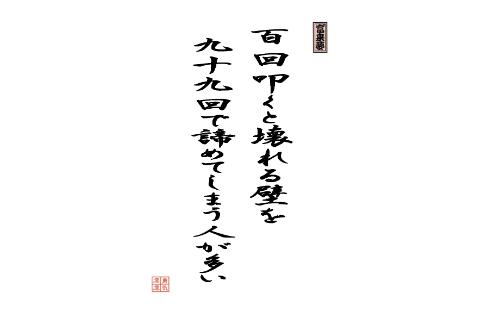 百回叩くと壊れる壁を
九十九回で諦めてしまう人が多い